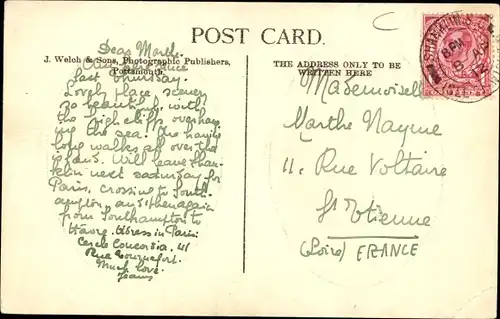 POST CARD.
J. Welch & Sons, Photographic Publishers,
Portsmouth.
THE ADDRESS ONLY TO BE
WRITTEN HERE
Dear Marthe
Am here since
last Thursday.
Lovely place scenery
so beautiful with
the high cliffs overhang
ing the sea! Am having
long walks all over the
island. Will leave Shan
klin next saturday for
Paris, crossing to South
ampton, and then again
from Southampton to
Havre. Adress in Paris:
Cercle Concordia, 41
Rue Tournefort.
Much love.
Mademoiselle
Marthe Nayme
11. Rue Voltaire
St Etienne
(Loire) FRANCE
SHANKLIN
8 PM